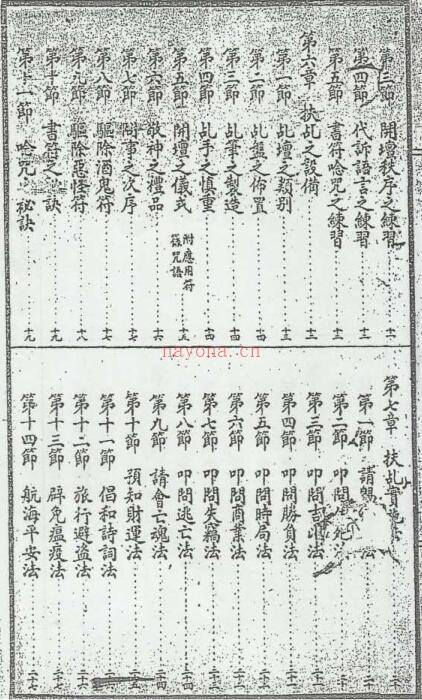 第三節 開壇秩序之練習
第四節 代訴語言之練習
第五節 書符唸咒之練習
第六章 扶乩之設備
第一節 乩壇之類別……十三
第二節 乩盤之佈置……十四
第三節 乩筆之製造……十四
第四節 乩手之慎重……十四
第五節 開壇之儀式 附應用符籙咒語……十五
第六節 敬神之禮品……十六
第七節 問事之次序……十七
第八節 驅除酒鬼符……十七
第九節 驅除惡怪符……十八
第十節 書符之訣……十九
第十一節 唸咒秘訣……十九
nayona.cn
第七章 扶乩
第一節 請法
第二節 叩問死
第三節 叩問吉凶法
第四節 叩問勝負法
第五節 叩問時局法
第六節 叩問商業法
第七節 叩問失竊法
第八節 叩問逃亡法
第九節 請會亡魂法
第十節 預知財運法
第十一節 倡和詩詞法
第十二節 旅行避盜法
第十三節 辟免瘟疫法
第十四節 航海平安法